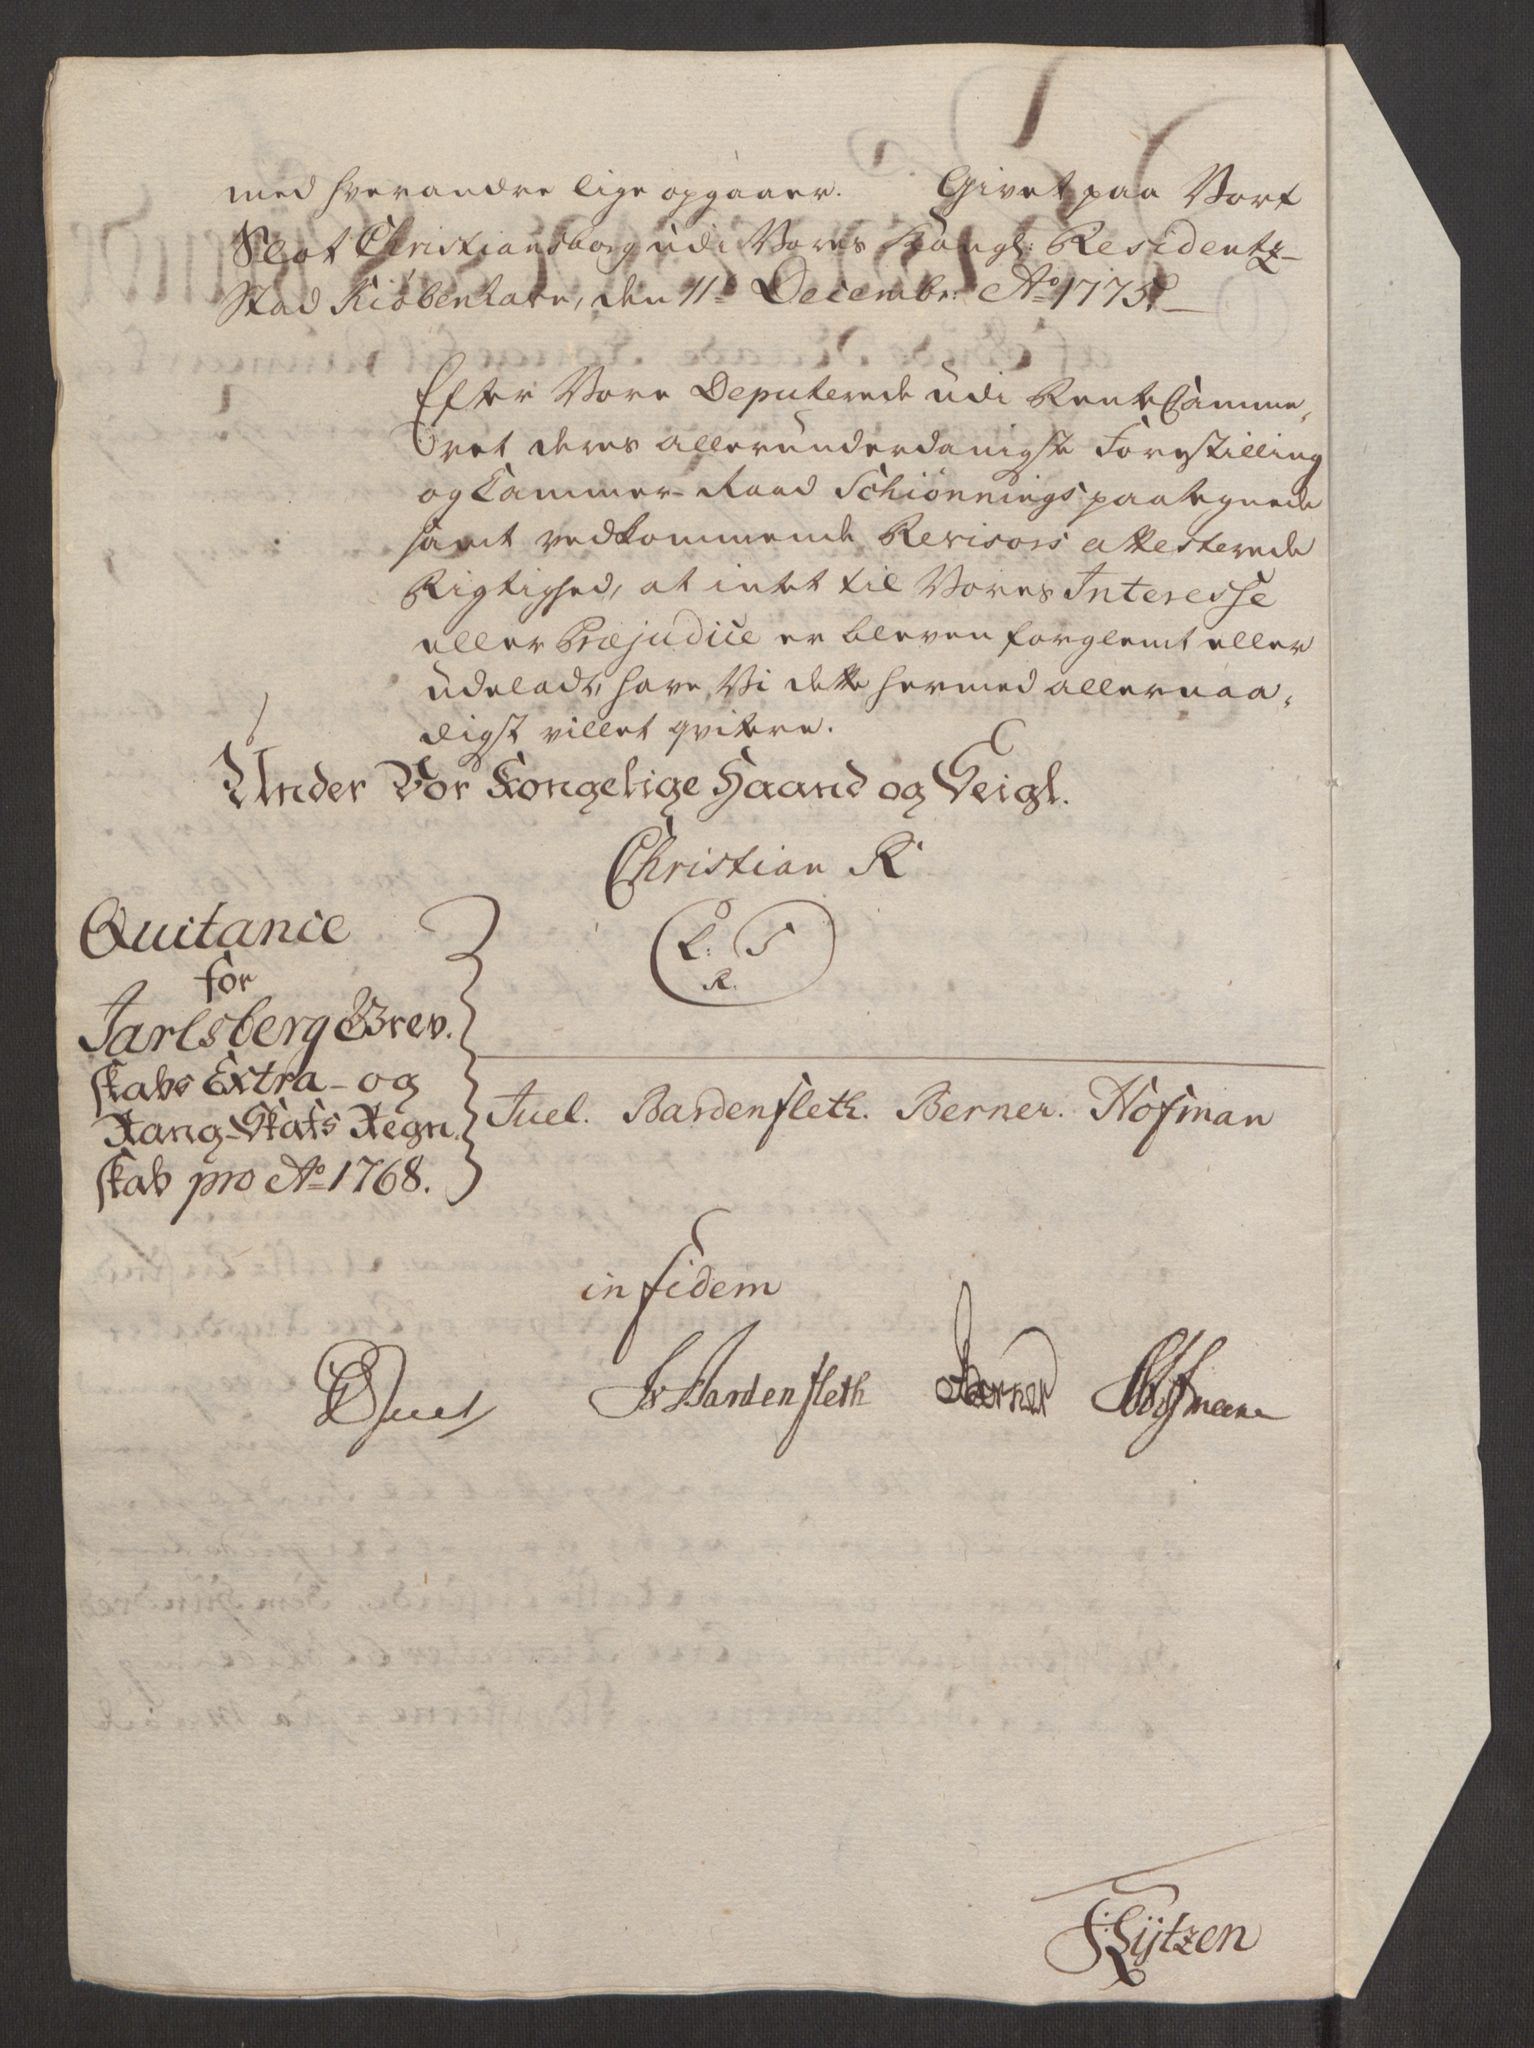 med hverandre lige opgaaer. Givet paa Vort
Slot Christiansborg udi Vores Kongl: Residentz-
Stad Kiöbenhavn, den 11te Decembr: Ao 1775.
Efter Vore Deputerede udi RenteCamme,
ret deres allerunderdanigste Forestilling
og Cammer-Raad Schiönnings paategnede
samt vedkommende Revisors attesterede
Rigtighed, at intet til Vores Interesse
eller Præjudice er bleven forglemt eller
udeladt, have Vi dette hermed allernaa,
digst villet qvitere.
Under Vor Kongelige Haand og Seigl.
Christian R
L. S
R.
Quitance
for
Jarlsberg Grev.
skabs Extra- og
Rang-Skats Regn.
skab pro Ao 1768.
Juel. Bardenfleth. Berner. Hofman
in fidem
Juel Bardenfleth Berner Hofman
Lÿtzen